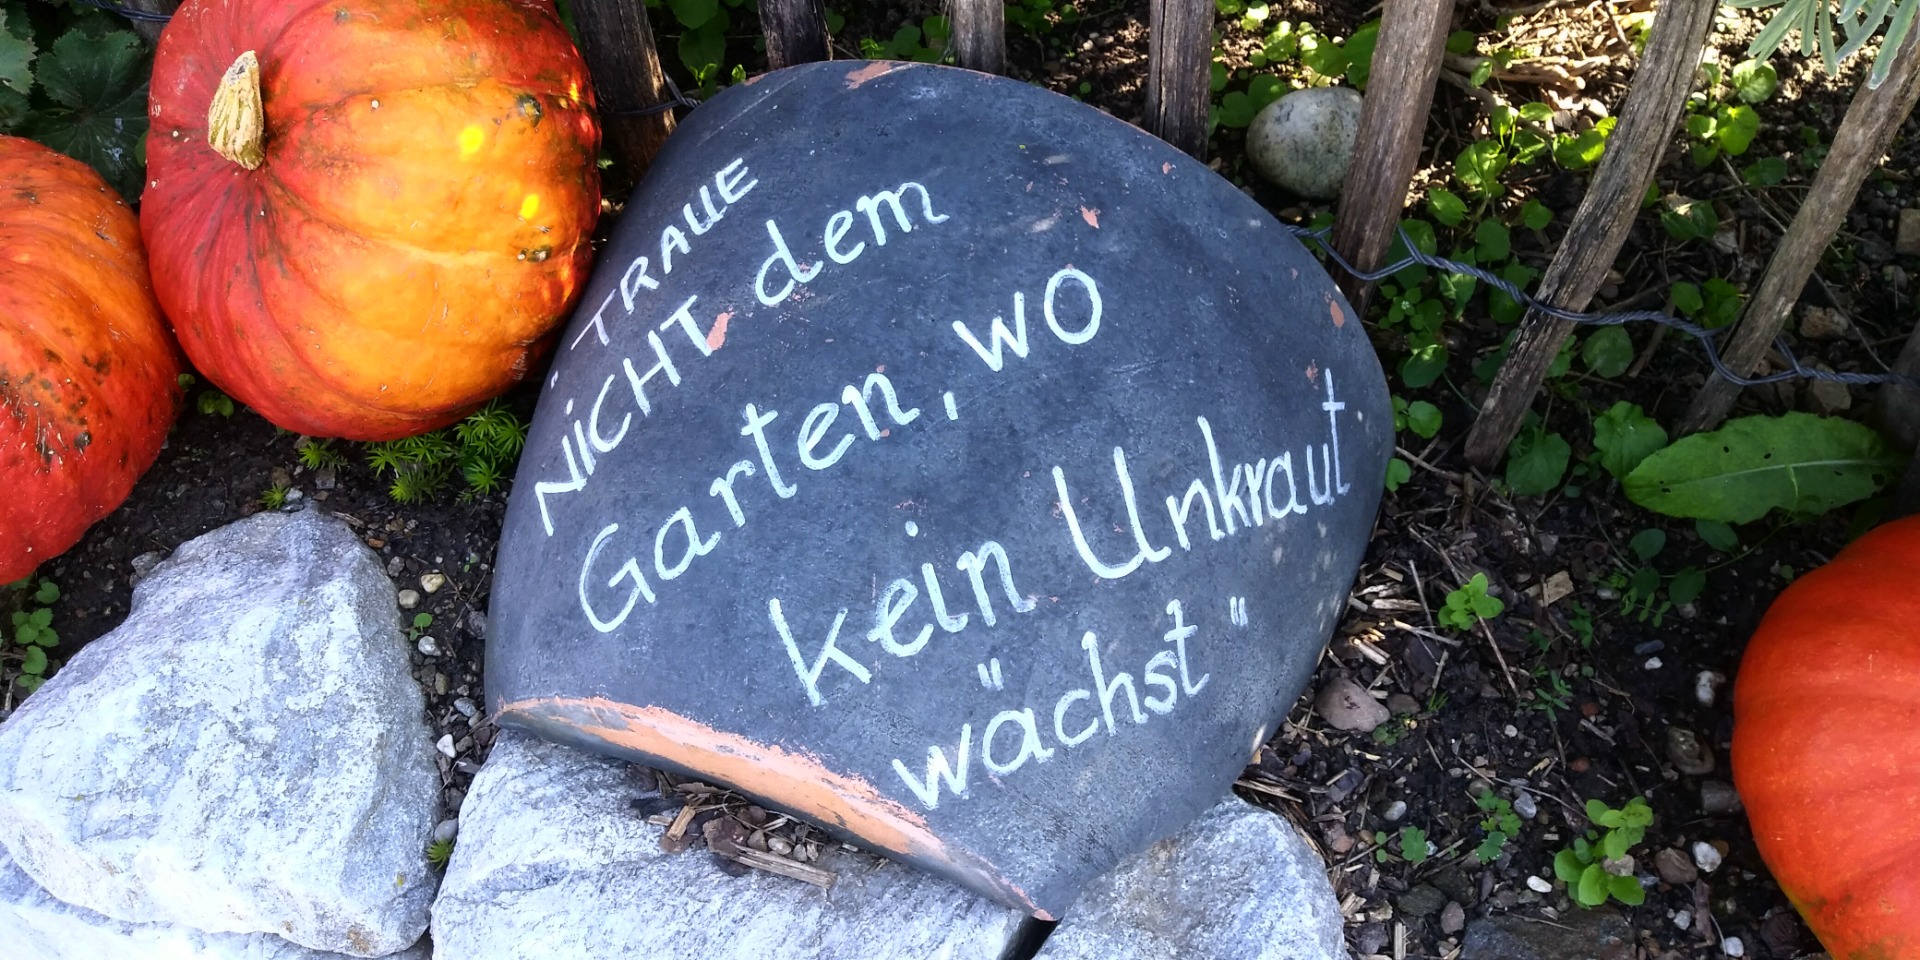 TRAUE
NICHT dem
Garten, wo
kein Unkraut
wächst"